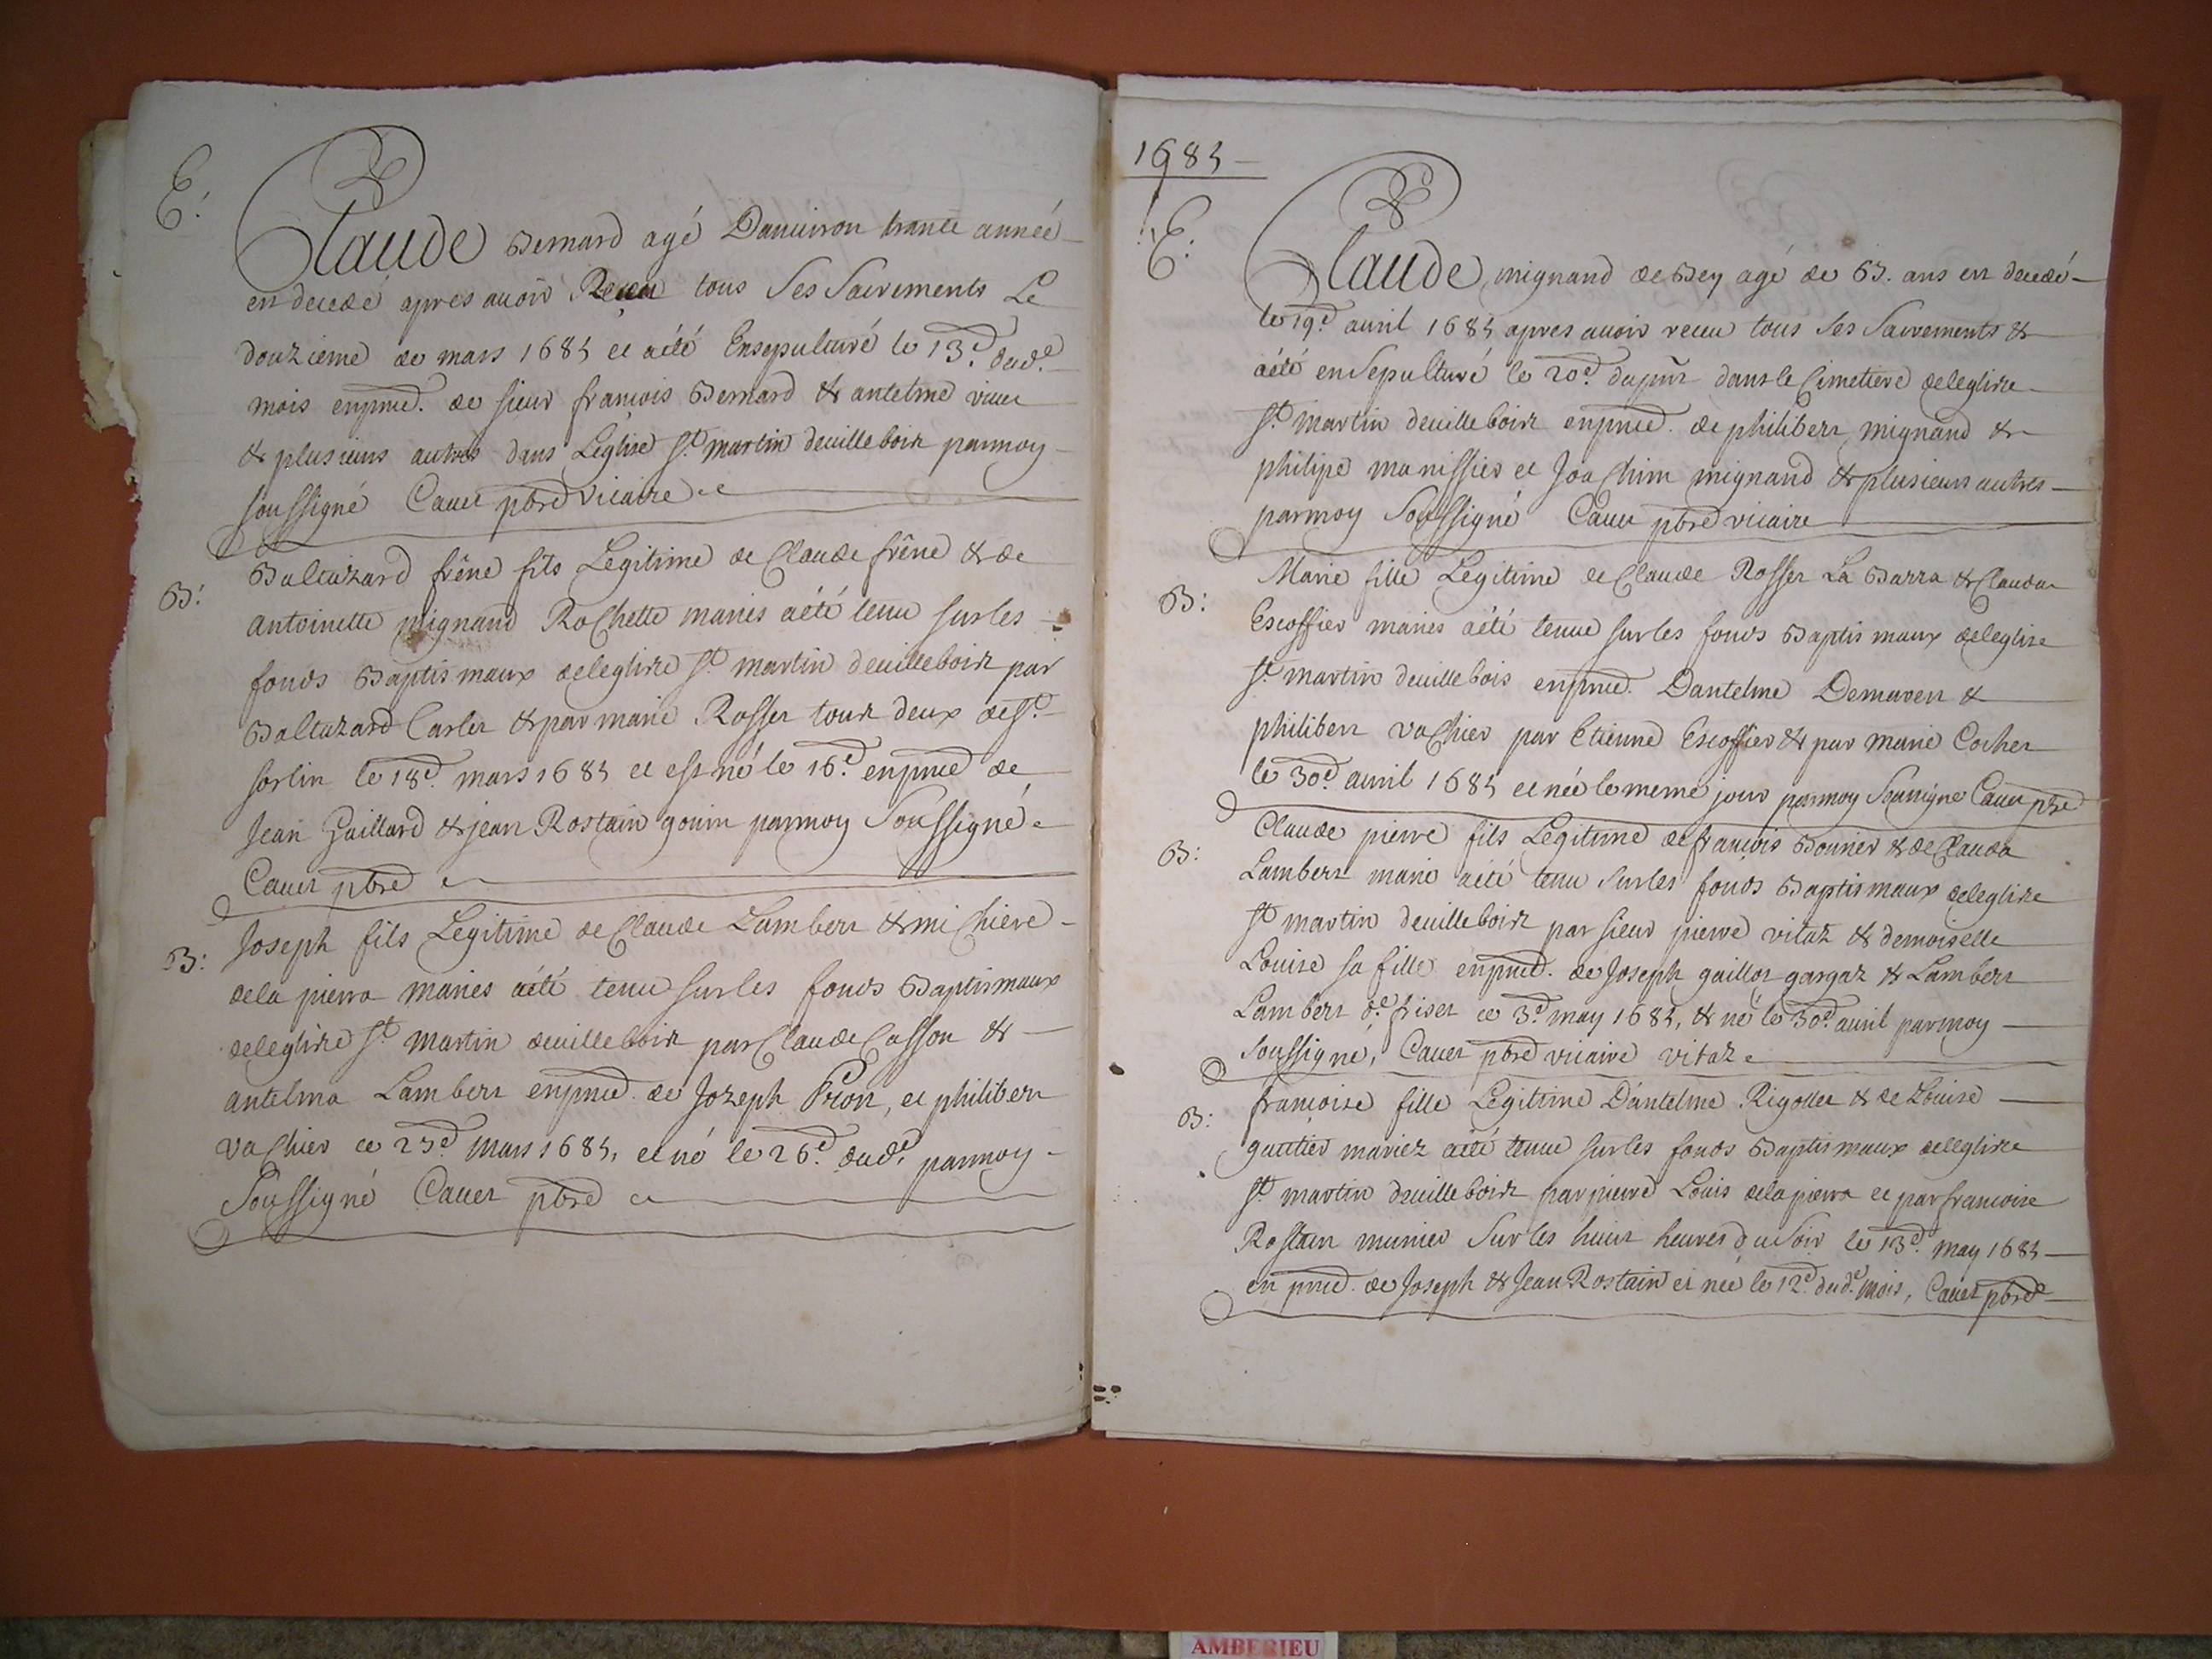 E:
Claude Bernard agé Danuiron trante année
est decedé apres auoir Receu tous Ses Sacrements Le
douzieme de mars 1685 et aété Ensepulturé le 13e. dud.e
mois enpnce. de sieur francois Bernard & antelme
& plusieurs autres dans Leglise st. martin deuilleboix parmoy
soussigné Cauet pbre vicaire
B:
Baltazard frêne fils Legitime de Claude frêne & de
antoinette mignand Rochette mariés aété tenu sur les
fonds Baptismaux deleglize st. martin deuilleboix par
Baltazard Carlet & par marie Rosset tour deux de st.
sorlin le 18e. mars 1685 et est né le 16e. enpnce de
Jean Gaillard & jean Rostain gouin parmoy Soussigné
Cauet pbre
B:
Joseph fils Legitime de Claude Lambert & michiere
dela pierra mariés aété tenu sur les fonds Baptismaux
deleglize st. martin deuilleboix par Claude Casson &
antelma Lambert enpnce. de Jozeph Prost, et philibert
vachier ce mars 1685, et né le 26e. dud.e parmoy
Soussigné Cauet pbre
1685
E:
Claude mignand de Bey agé de 65. ans est decedé
le 19e. auril 1685 apres auoir receu tous ses Sacrements &
aété ensepulturé le 20e. dupnt dans le Cimetiere deleglize
st. martin deuilleboix enpnce. de philibert mignand &
philipe manissier et Joachim mignand & plusieurs autres
parmoy Soussigné Cauet pbre vicaire
B:
Marie fille Legitime de Claude Rosset La Barra & Clauda
Escoffier mariés aété tenue sur les fonds Baptismaux deleglize
st. martin deuillebois enpnce. Dantelme Demaret &
philibert vachier par Etienne Escoffier & par marie Cochet
le 30e. auril 1685 et née le meme jour parmoy Soussigné Cauet pbre
B:
Claude pierre fils Legitime de francois Bonnet & de Clauda
Lambert marié aété tenu sur les fonds Baptismaux deleglize
st. martin deuilleboix par sieur pierre vitaz & demoiselle
Louise sa fille enpnce. de Joseph gaillot gargaz & Lambert
Lambert d.e friset ce 3e. may 1685, & né le 30e. auril parmoy
Soussigné, Cauet pbre vicaire vitaz
B:
francoise fille Legitime Dantelme Rigollet & de Louise
gautier mariez aété tenue sur les fonds Baptismaux deleglize
st. martin deuilleboix par pierre Louis dela pierra et par francoise
Rostain munier Sur les huit heures du Soir le 13e. may 1685
en pnce. de Joseph & Jean Rostain et née le 12e. dud.e mois, Cauet pbre
AMBERIEU